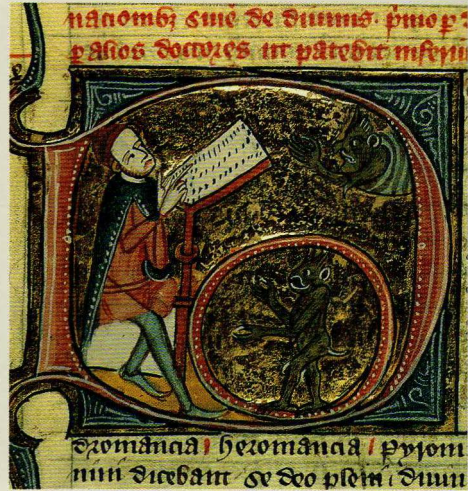 naciombꝫ siue de diuinis. pͥmo p
p alios doctores ut patebit inferiu
dromancia / heromancia / pyrom
nini dicebant se deo pleni ; diuin